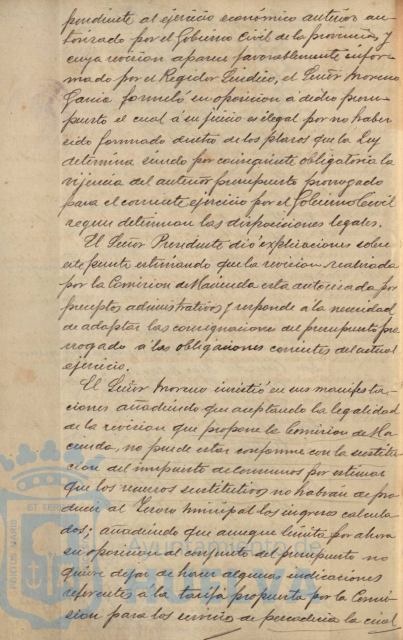 pendiente al ejercicio económico anterior au-
torizado por el Gobierno Civil de la provincia, y
cuya revision aparece favorablemente infor-
mado por el Regidor Sindico, el Señor Moreno
Garcia formuló su oposicion á dicho presu-
puesto el cual á su juicio es ilegal por no haber
sido formado dentro de los plazos que la Ley
determina siendo por consiguiente obligatoria la
vijencia del anterior presupuesto prorrogado
para el corriente ejercicio por el Gobierno Civil
segun determinan las disposiciones legales.
El Señor Presidente dió explicaciones sobre
este punto estimando que la revision realizada
por la Comision de Hacienda esta autorizada por
preceptos administrativos y responde á la necesidad
de adaptar las consignaciones del presupuesto pro-
rrogado á las obligaciones corrientes del actual
ejercicio.
El Señor Moreno insistió en sus manifesta-
ciones añadiendo que aceptando la legalidad
de la revision que propone la Comision de Ha-
cienda, no puede estar conforme con la sustitu-
cion del impuesto de consumos por estimar
que los recursos sustitutivos no habran de pro-
ducir al Tesoro Municipal los ingresos calcula-
dos; añadiendo que aunque limita por ahora
su oposicion al conjunto del presupuesto no
quiere dejar de hacer algunas indicaciones
referentes á la tarifa propuesta por la Comi-
sion para los servicios de la cual